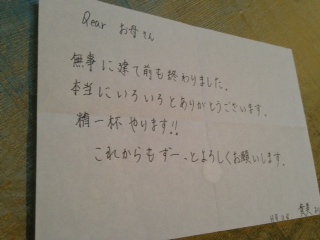 Dear お母さん
無事に建て前も終わりました。
本当にいろいろとありがとうございます。
精一杯やります!!
これからもずーっとよろしくお願いします。